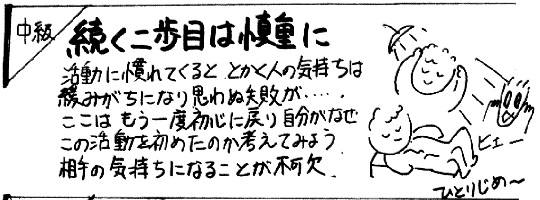 中級
続く二歩目は慎重に
活動に慣れてくると とかく人の気持ちは
緩みがちになり思わぬ失敗が……
ここは もう一度初心に戻り自分がなぜ
この活動を初めたのか考えてみよう
相手の気持ちになることが不可欠
ビェー
ひとりじめ〜